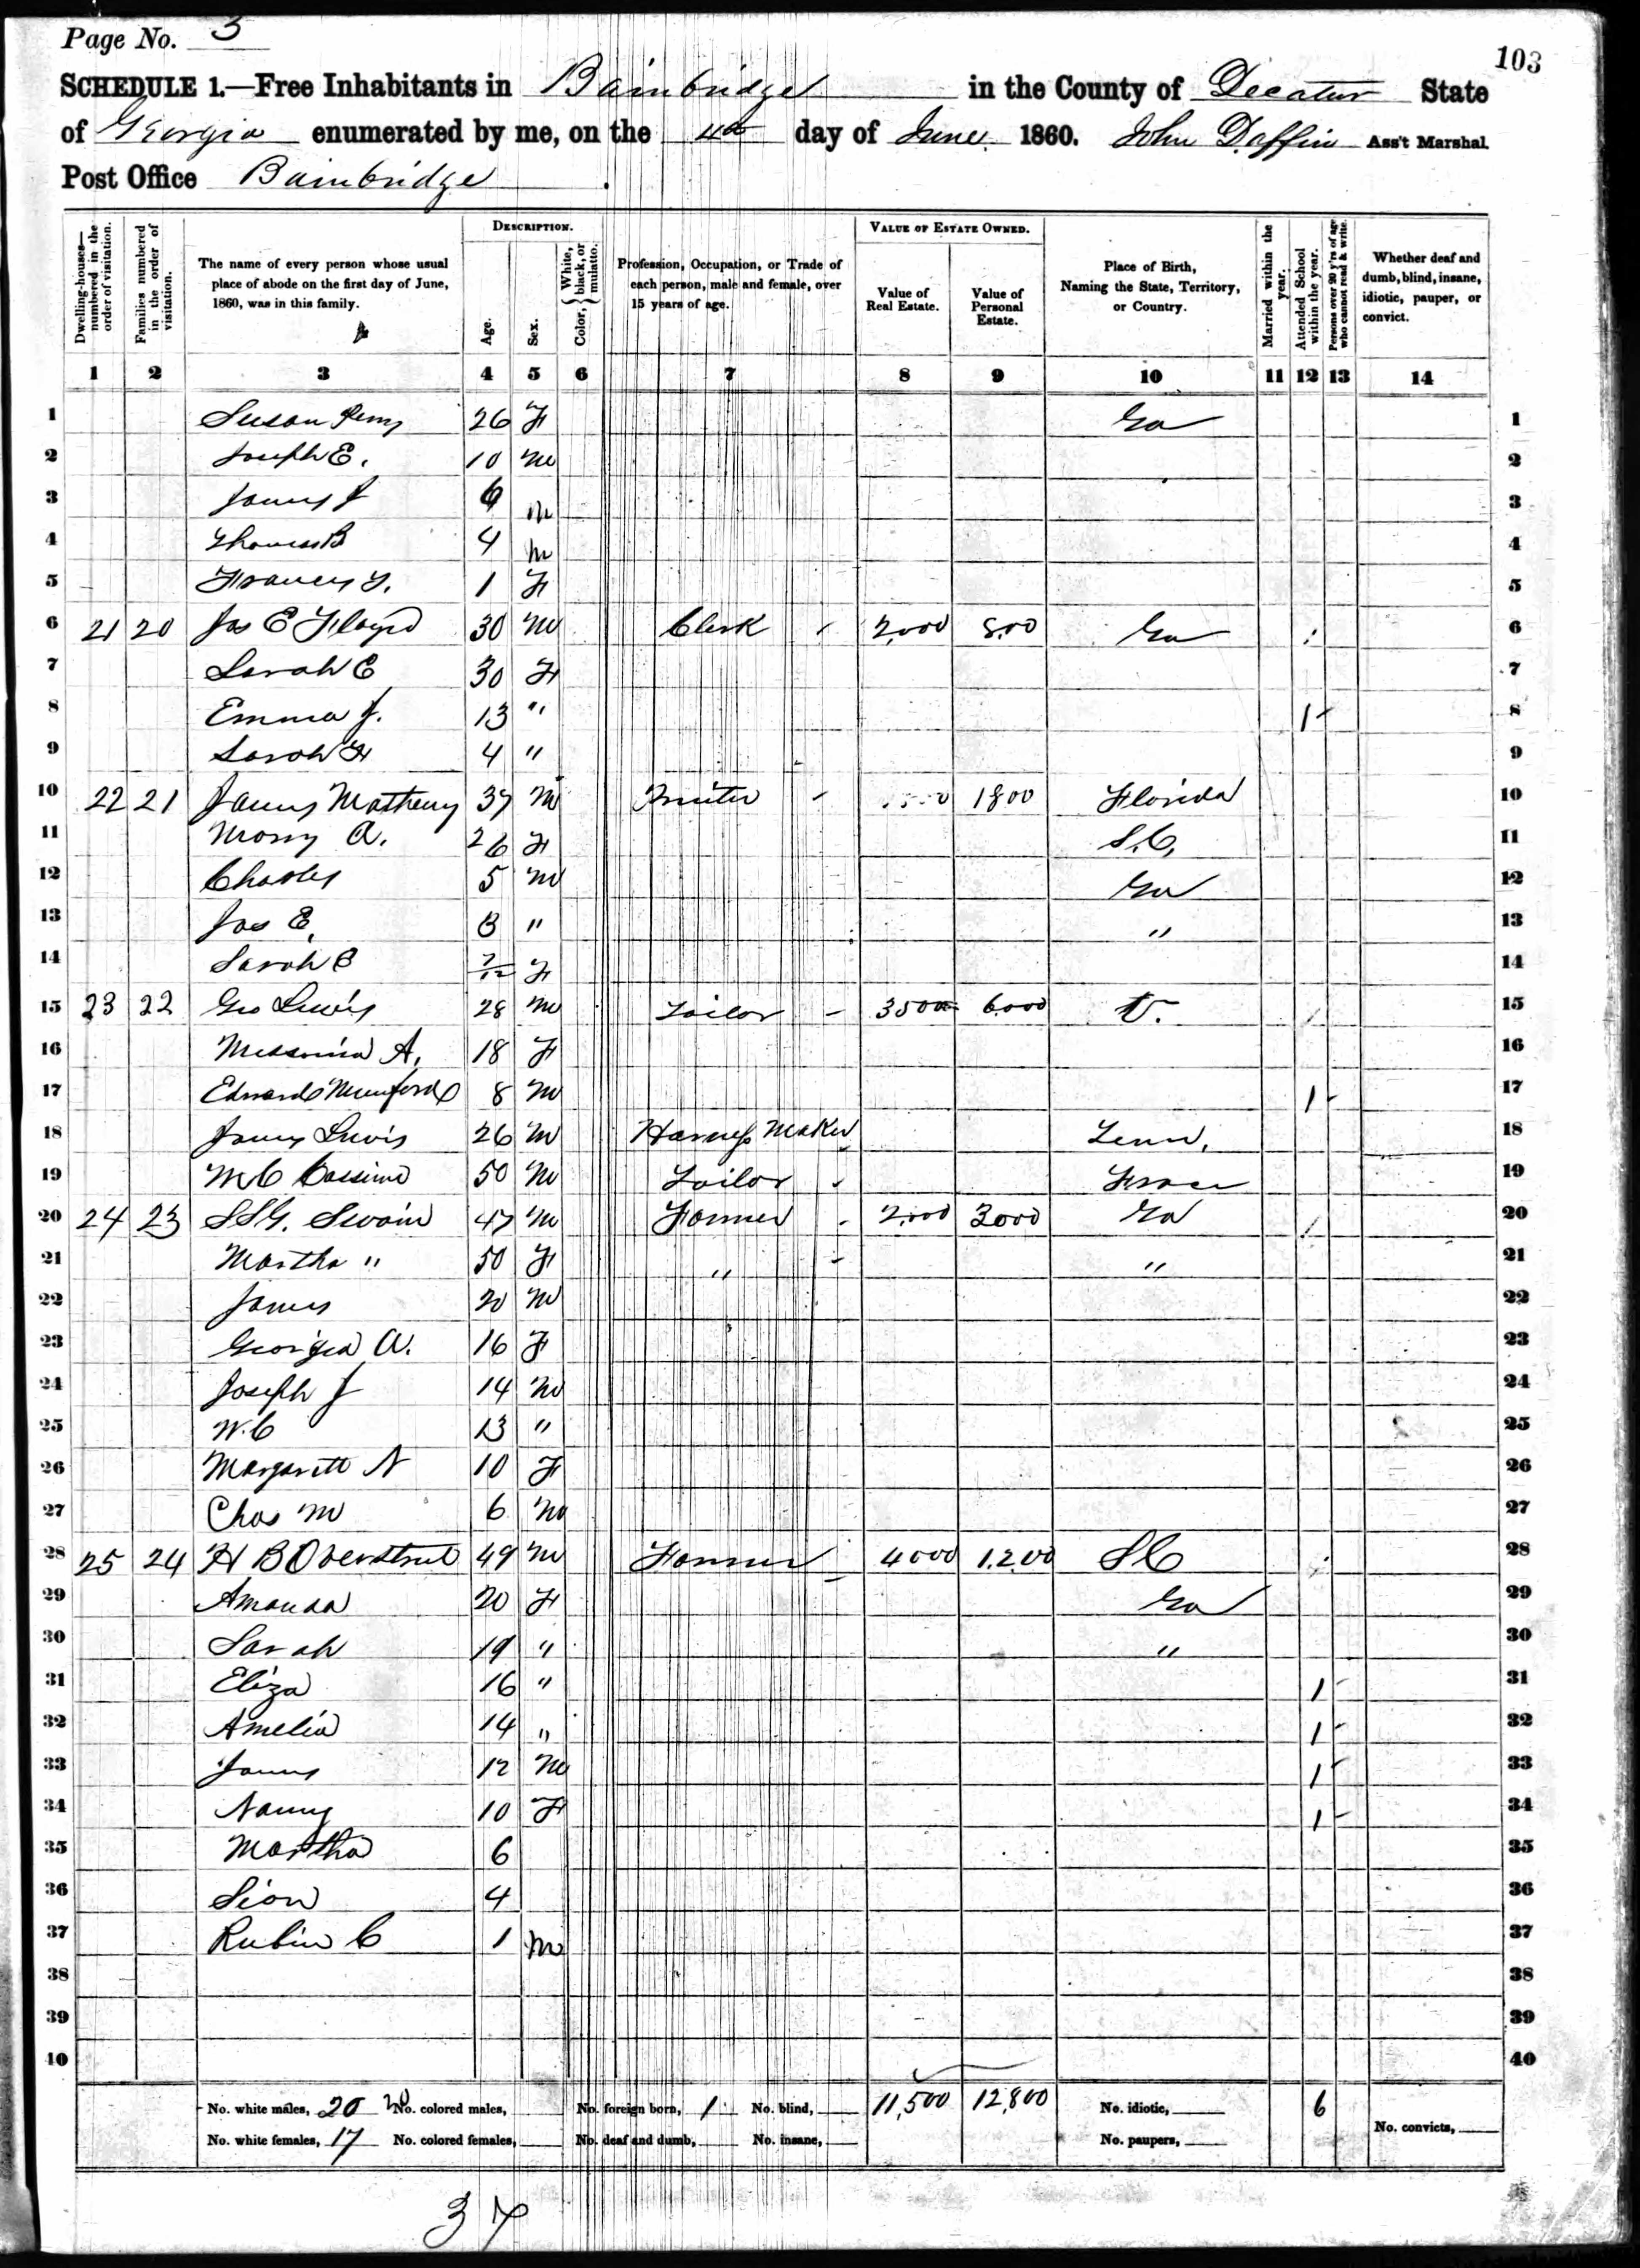 Page No. 3
103
SCHEDULE 1.—Free Inhabitants in Bainbridge in the County of Decatur State
of Georgia enumerated by me, on the 4th day of June 1860. John Daffin Ass't Marshal.
Post Office Bainbridge.
Dwelling-houses—numbered in the order of visitation.
Families numbered in the order of visitation.
The name of every person whose usual place of abode on the first day of June, 1860, was in this family.
DESCRIPTION.
Age.
Sex.
Color, { White, black, or mulatto.
Profession, Occupation, or Trade of each person, male and female, over 15 years of age.
VALUE OF ESTATE OWNED.
Value of Real Estate.
Value of Personal Estate.
Place of Birth, Naming the State, Territory, or Country.
Married within the year.
Attended School within the year.
Persons over 20 y'rs of age who cannot read & write.
Whether deaf and dumb, blind, insane, idiotic, pauper, or convict.
1 2 3 4 5 6 7 8 9 10 11 12 13 14
1 Susan 26 F Ga 1
2 Joseph E. 10 M 2
3 James J 6 M 3
4 Thomas B 4 M 4
5 Frances 1 F 5
6 21 20 Jas E Floyd 30 M Clerk 2,000 800 Ga 6
7 Sarah E 30 F 7
8 Emma J. 13 " 1 8
9 Sarah F 4 " 9
10 22 21 James Matheny 37 M 1800 Florida 10
11 Mary A. 26 F S.C. 11
12 Charles 5 M Ga 12
13 Jas E. 3 " " 13
14 Sarah 7/12 F 14
15 23 22 Geo Lewis 28 M Tailor 3500 6000 15
16 A. 18 F 16
17 Edward Mumford 8 M 1 17
18 James Lewis 26 M Harness Maker Tenn. 18
19 M C 50 M Tailor 19
20 24 23 Swain 47 M Farmer 2,000 3000 Ga 20
21 Martha " 50 F " " 21
22 James 20 M 22
23 Georgia A. 16 F 23
24 Joseph J 14 M 24
25 W. C 13 " 25
26 Margarett N 10 F 26
27 Chas M 6 M 27
28 25 24 H B Overstreet 49 M Farmer 4000 1,200 S C 28
29 Amanda 20 F Ga 29
30 Sarah 19 " " 30
31 Eliza 16 " 1 31
32 Amelia 14 " 1 32
33 James 12 M 1 33
34 Nancy 10 F 1 34
35 Martha 6 35
36 Sion 4 36
37 Rubin C 1 M 37
38 38
39 39
40 40
No. white males, 20 20 No. colored males, No. foreign born, 1 No. blind, 11,500 12,800 No. idiotic, 6 No. convicts,
No. white females, 17 No. colored females, No. deaf and dumb, No. insane, No. paupers,
37